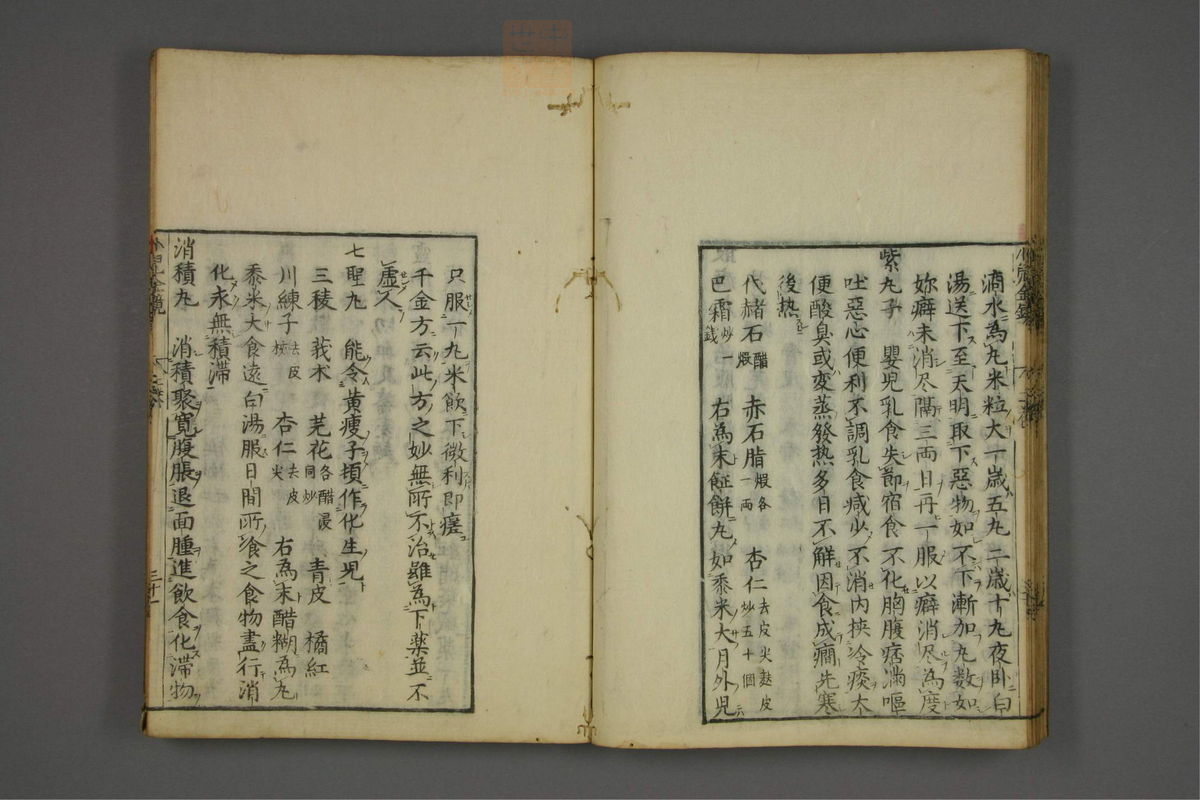 滴水為丸米粒大一歳五丸二歳十丸夜卧白
湯送下至天明取下惡物如不下漸加丸数如
妳癖未消尽隔三両日再一服以癖消尽為度
紫丸子 嬰児乳食失節宿食不化胸腹痞満嘔
吐惡心便利不調乳食减少不消内挟冷痰大
便酸臭或変蒸發热多日不解因食成癇先寒
後热
代赭石醋煅 赤石脂煅各一両 杏仁去皮尖麩皮炒五十個
巴霜炒一錢 右為末餅丸如黍米大月外児
只服一丸米飲下微利即瘥
千金方云此方之妙無所不治雖為下薬並不
虚人
七聖丸 能令黄痩子頃作化生児
三稜 莪朮 芫花各醋浸同炒 青皮 橘紅
川練子去皮核 杏仁去皮尖 右為末醋糊為丸
黍米大食遠白湯服日間所食之食物盡行消
化永無積滞
消積丸 消積聚寛腹脹退面腫進飲食化滞物
三十一